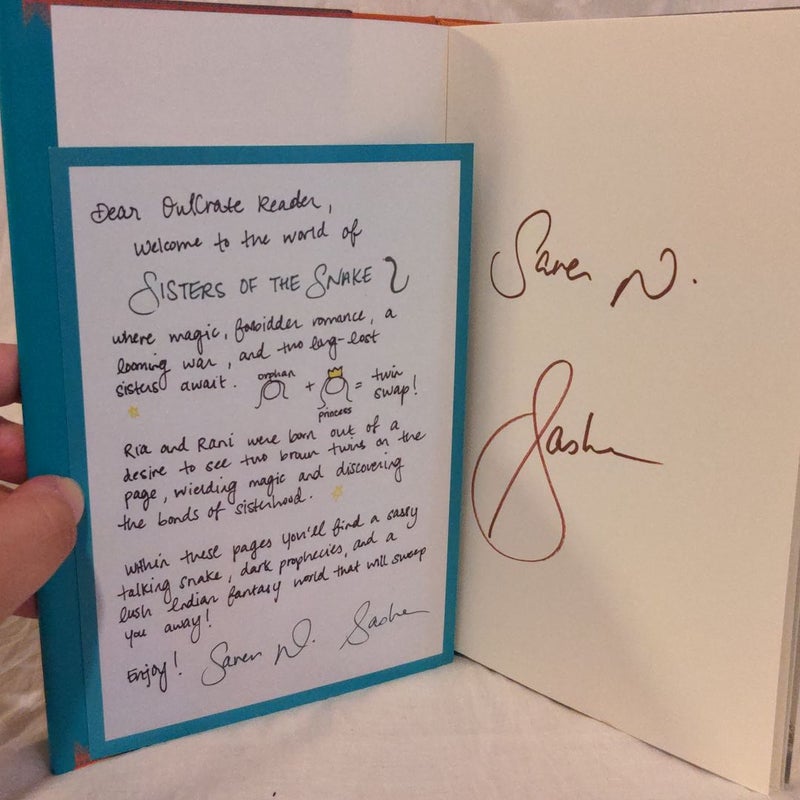 Dear OwlCrate Reader,
Welcome to the world of
SISTERS OF THE SNAKE
where magic, forbidden romance, a
looming war, and two long-lost
sisters await.
orphan
+
princess
= twin
swap!
Ria and Rani were born out of a
desire to see two brown twins on the
page, wielding magic and discovering
the bonds of sisterhood.
Within these pages you'll find a sassy
talking snake, dark prophecies, and a
lush Indian fantasy world that will sweep
you away!
Enjoy!
Saren N. Sasha
Saren N.
Sasha